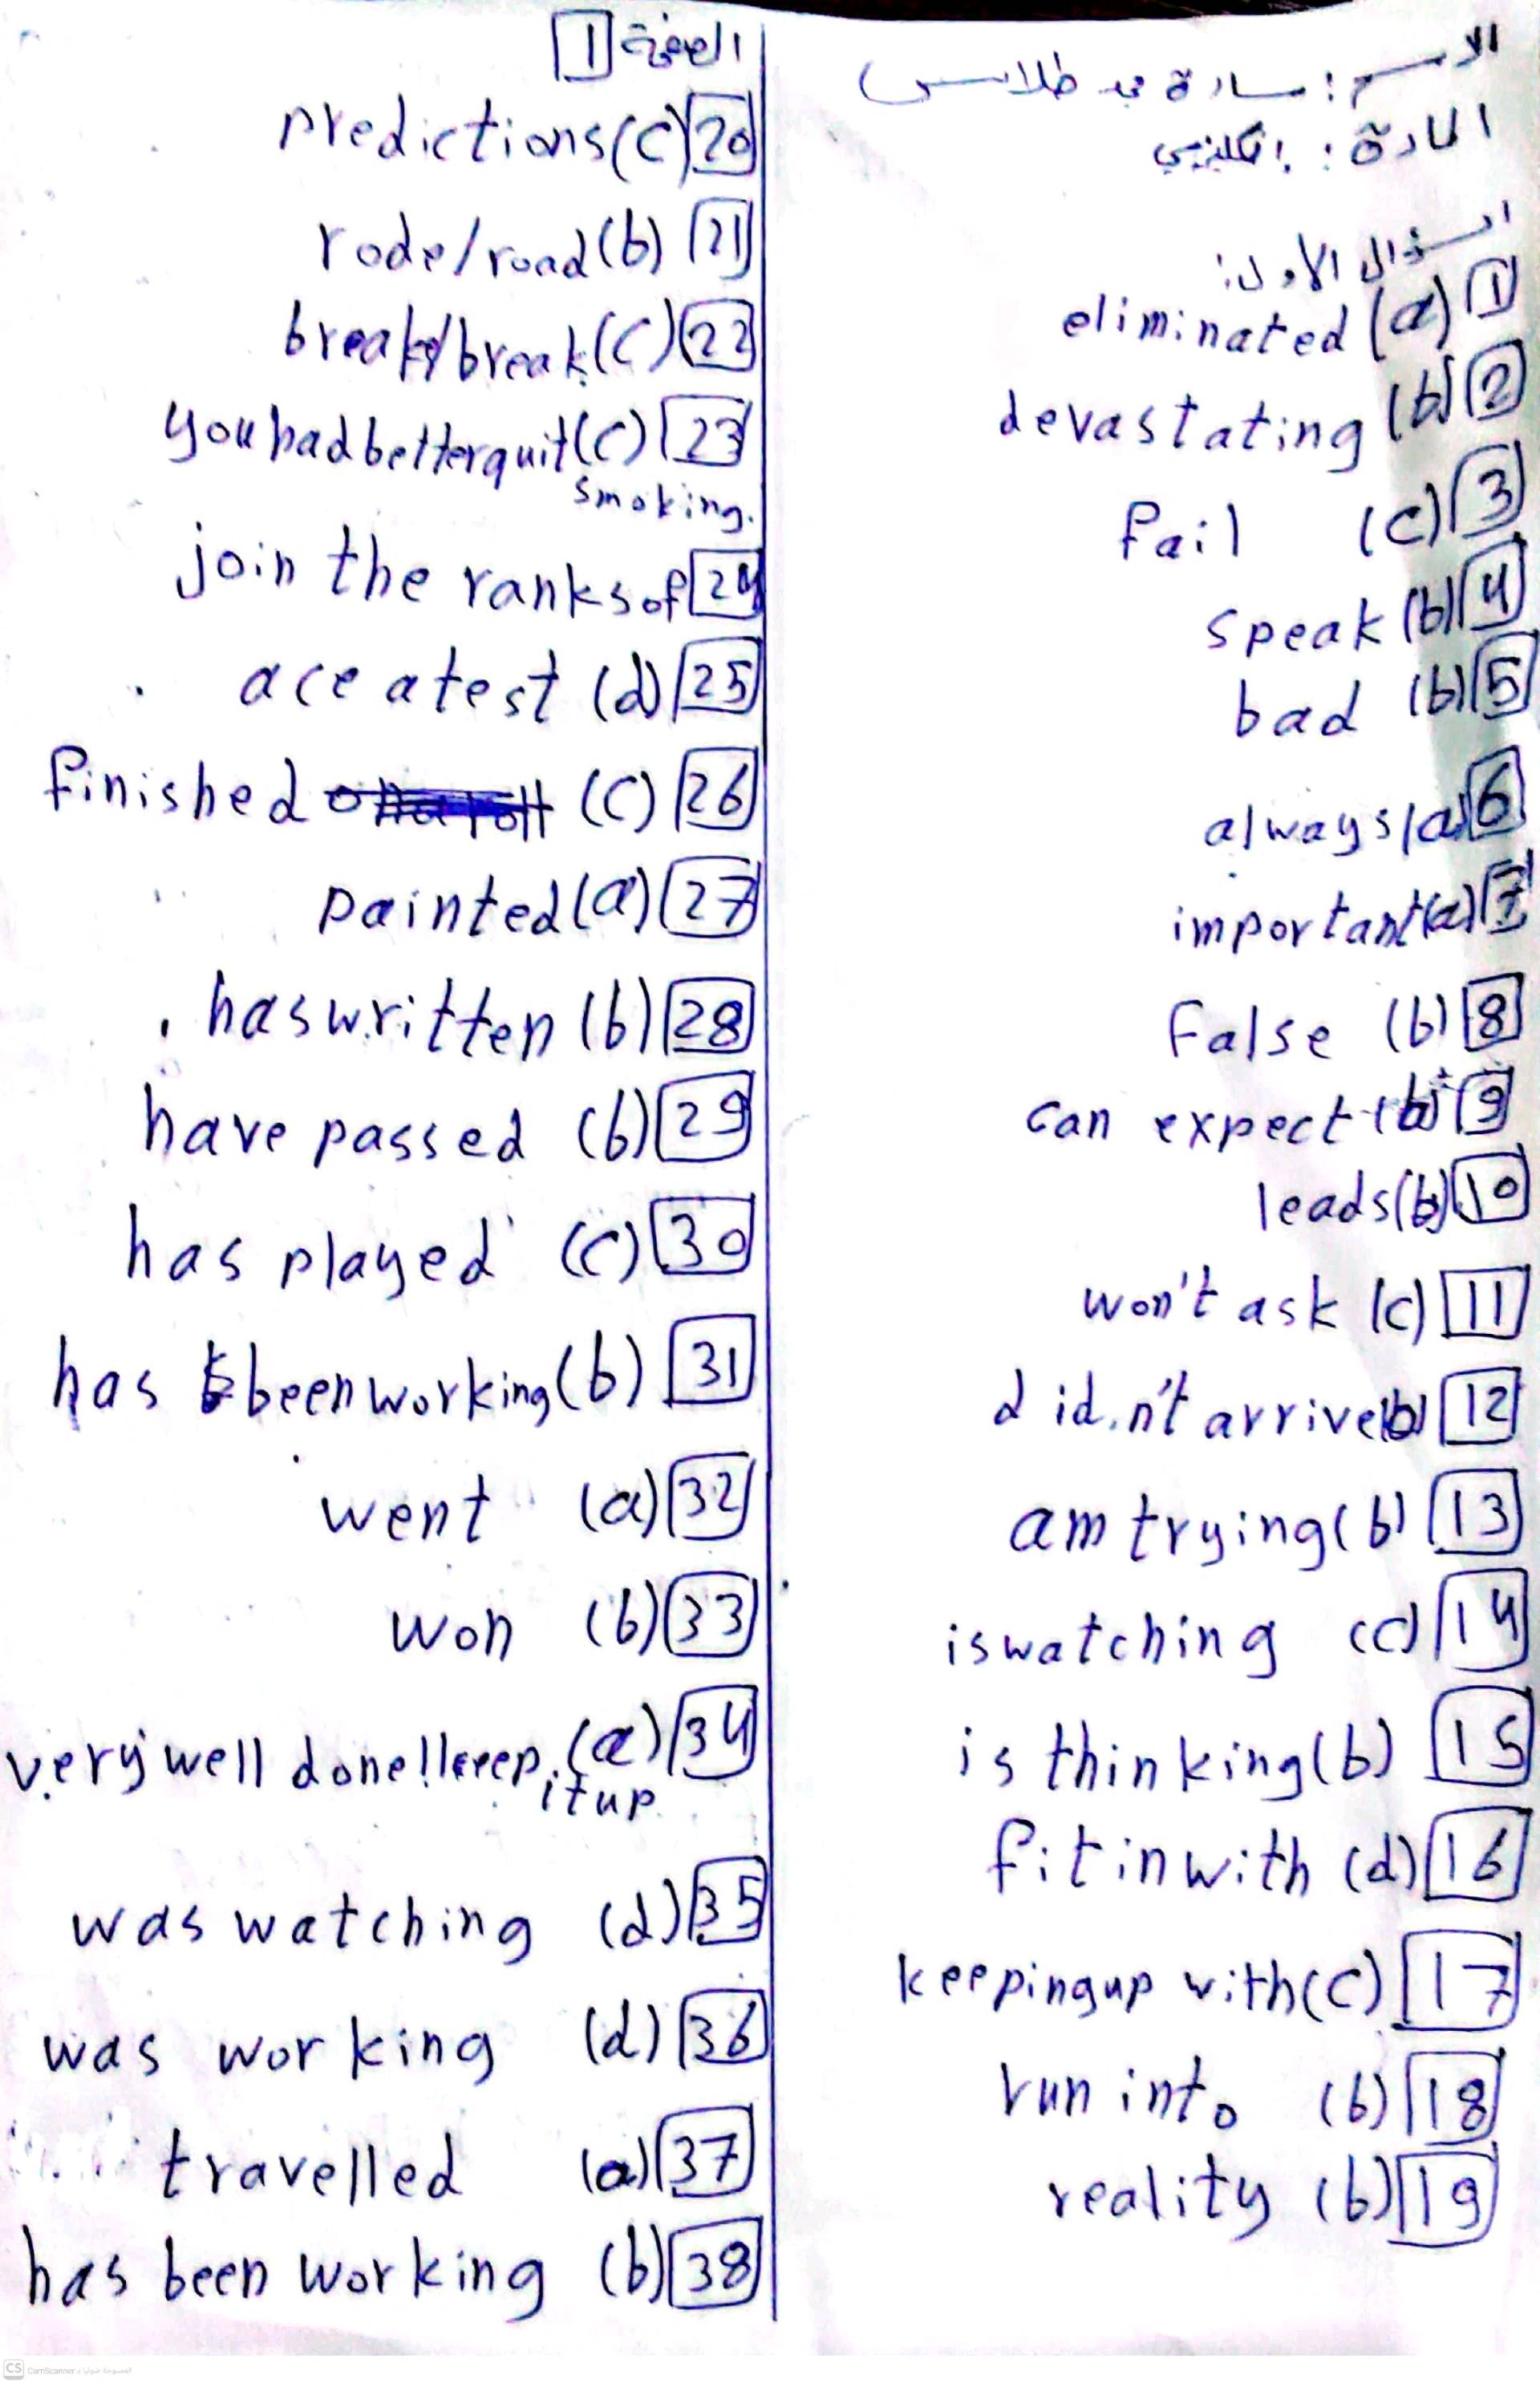 الاسم: سارة محمد طلاس
المادة: إنكليزي
السؤال الأول:
1 (a) eliminated
2 (b) devastating
3 (c) fail
4 (b) speak
5 (b) bad
6 (a) always
7 (a) important
8 (b) False
9 (b) can expect
10 (b) leads
11 (c) won't ask
12 (b) didn't arrive
13 (b) am trying
14 (c) is watching
15 (b) is thinking
16 (d) fit in with
17 (c) keeping up with
18 (b) run into
19 (b) reality
الصفحة 1
20 (c) predictions
21 (b) rode/road
22 (c) break/break
23 (c) you had better quit
smoking.
24 join the ranks of
25 (d) ace a test
26 (c) finished
27 (a) painted
28 (b) has written
29 (b) have passed
30 (c) has played
31 (b) has been working
32 (a) went
33 (b) won
34 (a) very well done! keep
it up
35 (d) was watching
36 (d) was working
37 (a) travelled
38 (b) has been working
CS CamScanner الممسوحة ضوئيا بـ